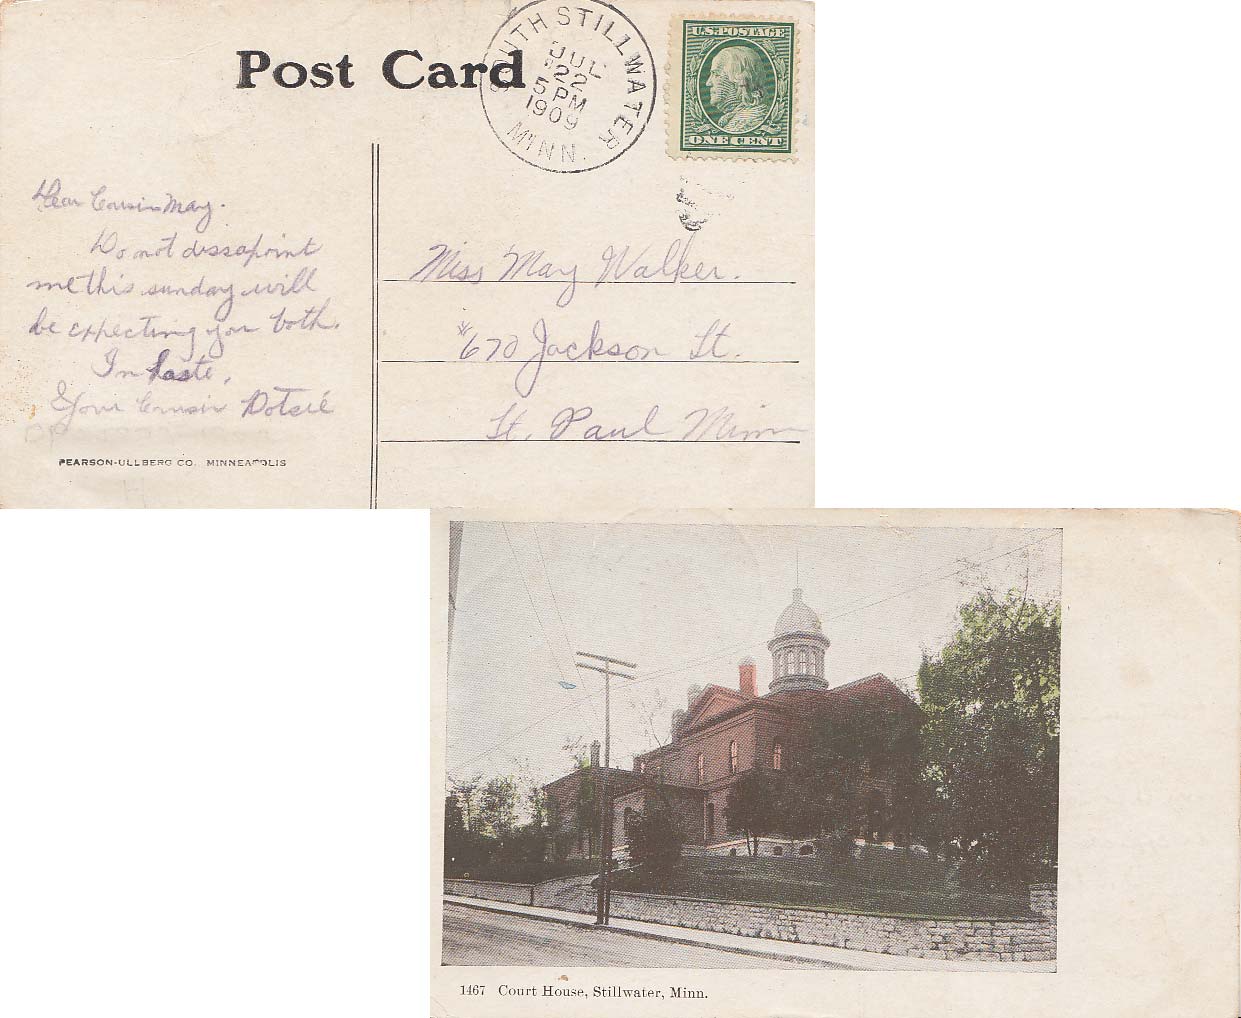 Post Card
SOUTH STILLWATER
JUL
22
5 PM
1909
MINN.
U.S. POSTAGE
ONE CENT
Dear Cousin May.
Do not dissapoint
me this sunday will
be expecting you both.
In haste,
Your Cousin Dotsie
PEARSON-ULLBERG CO. MINNEAPOLIS
Miss May Walker.
#670 Jackson St.
St. Paul Minn
1467 Court House, Stillwater, Minn.